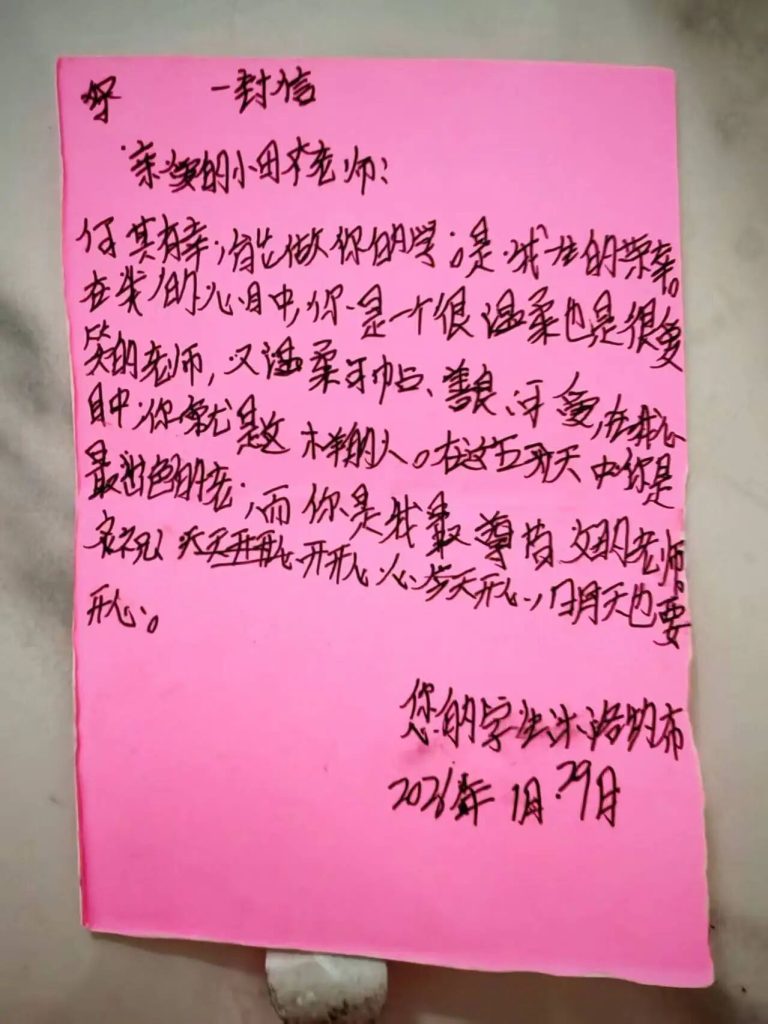 一封信
亲爱的小田老师:
何其有幸,能做你的学,是我的荣幸。
在我的心目中,你是一个很温柔也是很爱
笑的老师,又温柔、善良、可爱,在我心
目中,你就是这样的人。在这五天中你是
最出色的老,而你是我最尊的老师
天天开心 开开心心 天开心,明天也要
开心。
您的学生
2026年1月29日